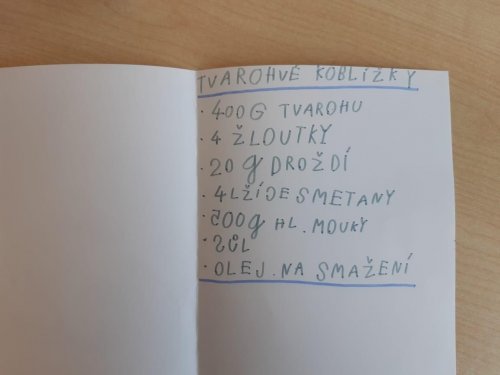 TVAROHVÉ KOBLÍŽKY
· 400G TVAROHU
· 4 ŽLOUTKY
· 20g DROŽDÍ
· 4 LŽÍCE SMETANY
· 500g HL. MOUKY
· SŮL
· OLEJ. NA SMAŽENÍ